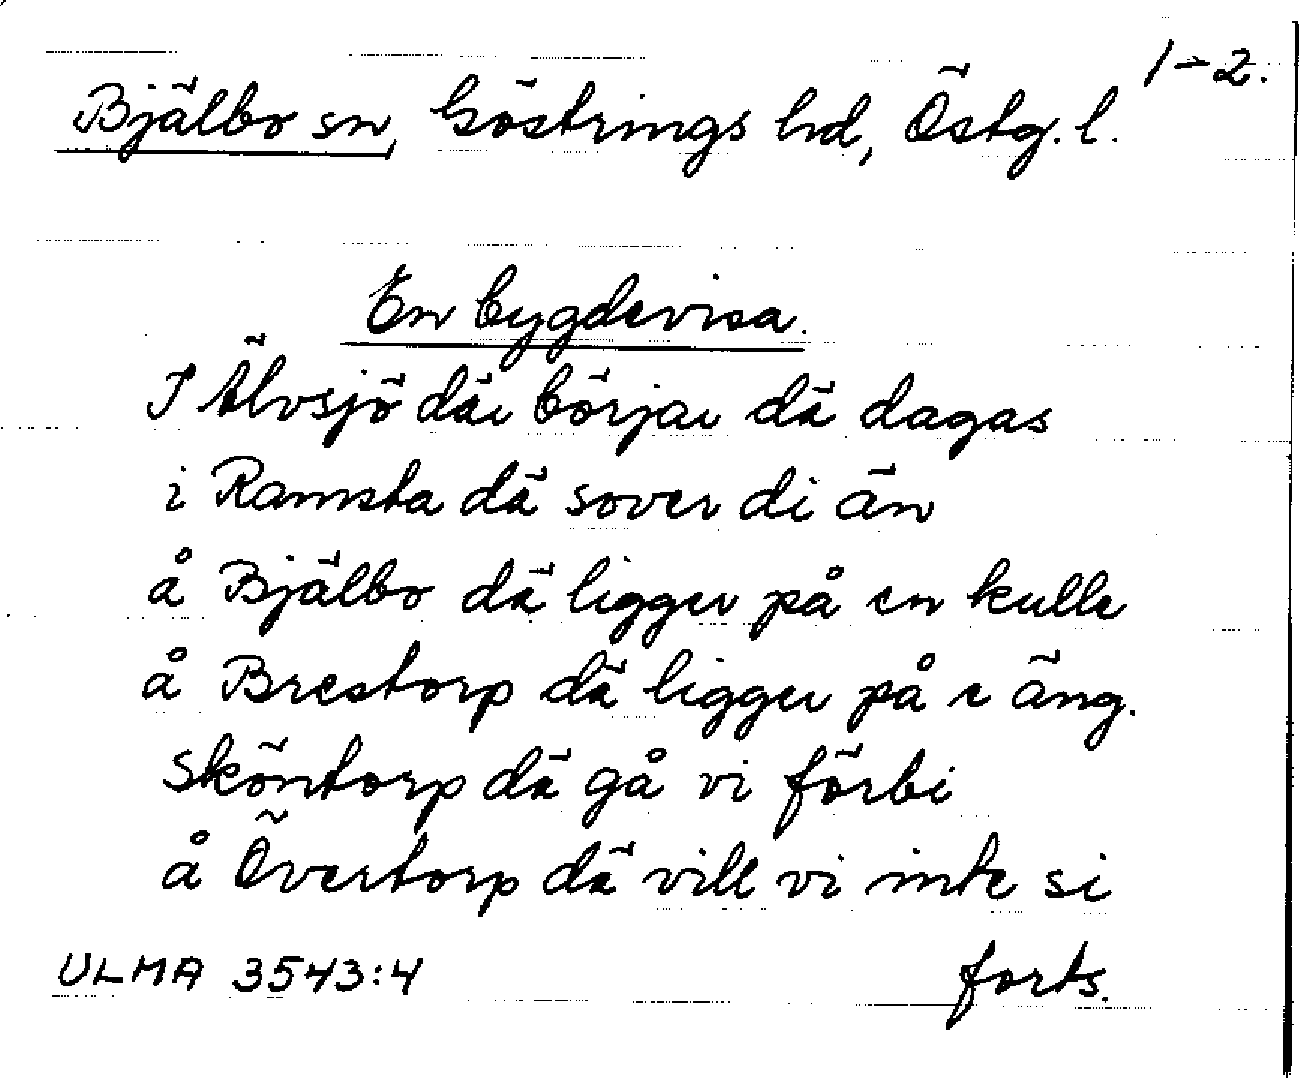 1-2.
Bjälbo sn, Göstrings hd, Östg. l.
En bygdevisa.
I Älvsjö där börjar dä dagas
i Ramsta dä sover di än
å Bjälbo dä ligger på en kulle
å Brestorp dä ligger på e äng.
Sköntorp dä gå vi förbi
å Övertorp dä vill vi inte si
ULMA 3543:4 forts.